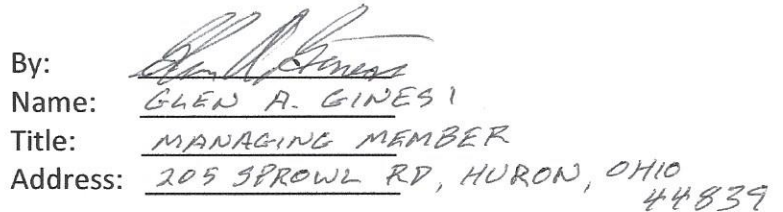 By: Glen A. Ginesi
Name: GLEN A. GINESI
Title: MANAGING MEMBER
Address: 205 SPROWL RD, HURON, OHIO
44839